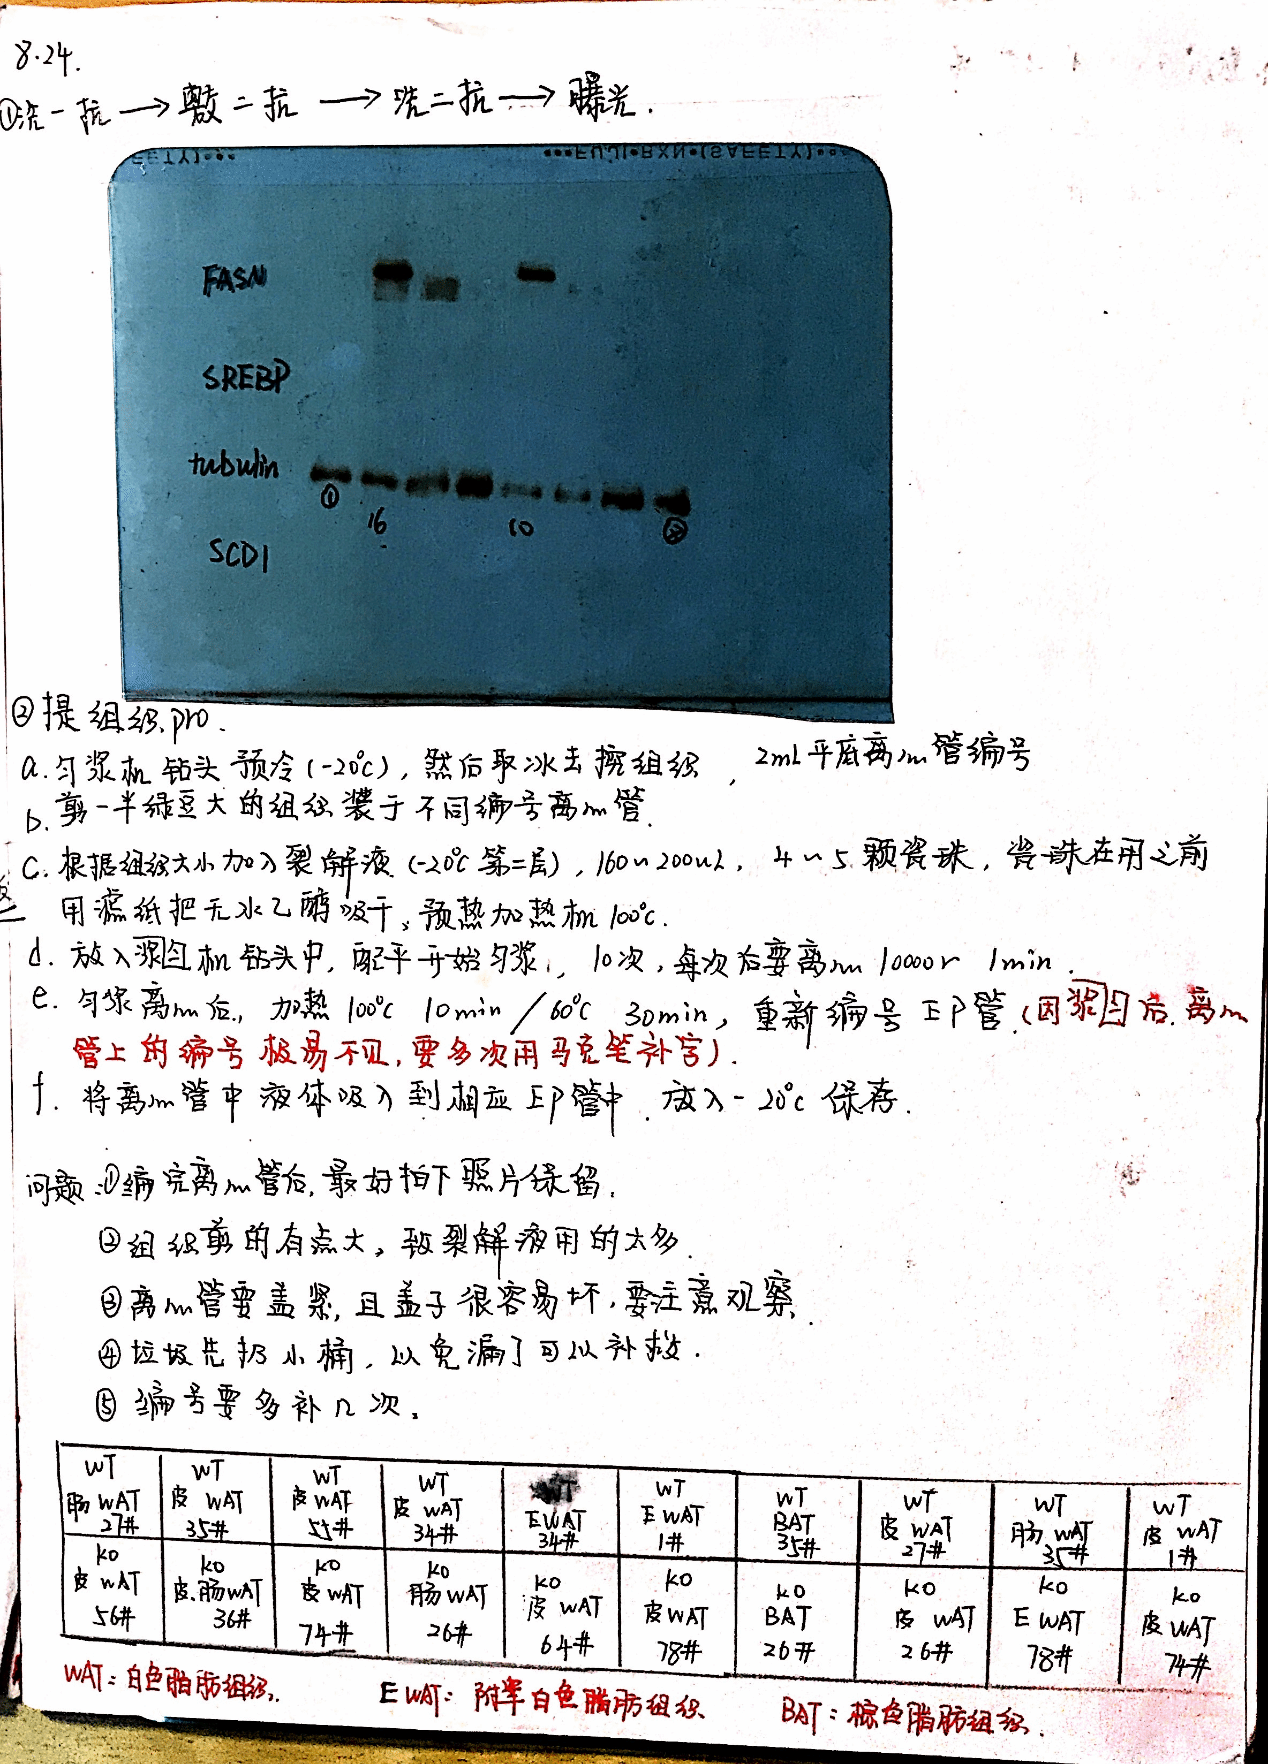 8.24.
①洗一抗→敷二抗→洗二抗→曝光.
FUJI•RXN•(SAFETY)
FASN
SREBP
tubulin
①
16
10
SCD1
②提组织pro.
a.匀浆机钻头预冷(-20℃),然后取冰去搅组织,2ml平底离心管编号
b.剪一半绿豆大的组织装于不同编号离心管.
c.根据组织大小加入裂解液(-20℃第二层),160~200uL,4~5颗瓷珠,瓷珠在用之前
用滤纸把无水乙醇吸干、预热加热机100℃.
d.放入浆匀机钻头中,配平开始匀浆,10次,每次后要离心10000r 1min.
e.匀浆离心后,加热100℃ 10min/60℃ 30min,重新编号EP管.(因浆匀后.离心
管上的编号极易不见,要多次用马克笔补写).
f.将离心管中液体吸入到相应EP管中.放入-20℃保存.
问题:①编完离心管后,最好拍下照片保留.
②组织剪的有点大,致裂解液用的太多.
③离心管要盖紧,且盖子很容易坏,要注意观察.
④垃圾先扔小桶,以免漏了可以补救.
⑤编号要多补几次.
WT 肠WAT 27# WT 皮WAT 35# WT 皮WAT 55# WT 皮WAT 34# WT EWAT 34# WT EWAT 1# WT BAT 35# WT 皮WAT 27# WT 肠WAT 35# WT 皮WAT 1#
KO 皮WAT 56# KO 皮.肠WAT 36# KO 皮WAT 74# KO 肠WAT 26# KO 皮WAT 64# KO 皮WAT 78# KO BAT 26# KO 皮WAT 26# KO EWAT 78# KO 皮WAT 74#
WAT:白色脂肪组织. EWAT:附睾白色脂肪组织 BAT:棕色脂肪组织.